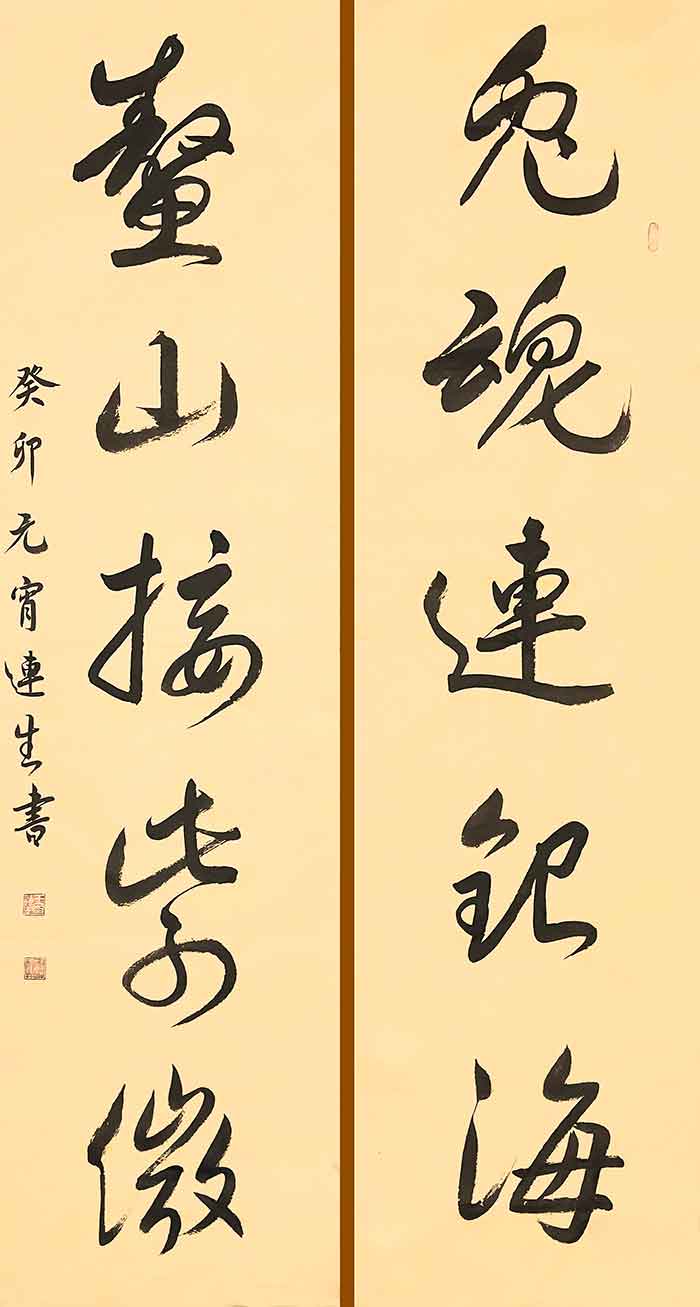 兔魂連銀海
鰲山接紫微
癸卯元宵連生書